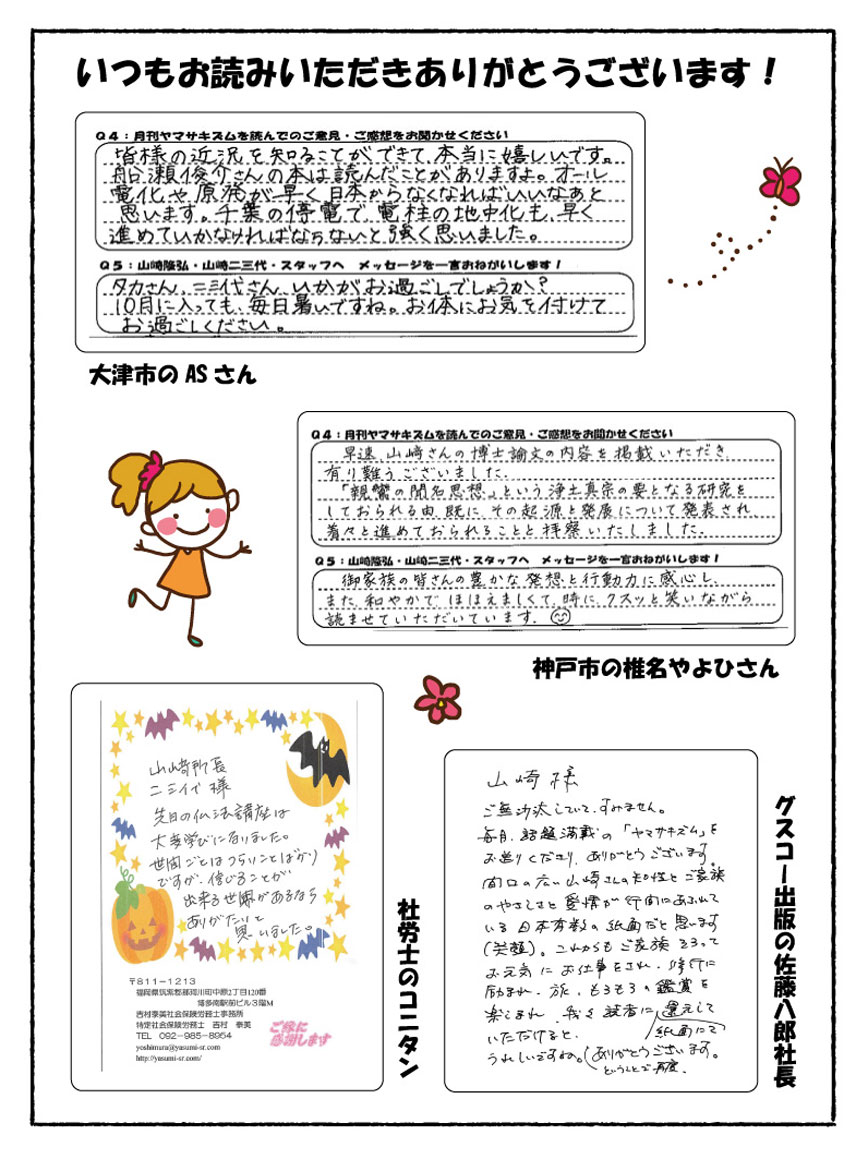 いつもお読みいただきありがとうございます!
Q4:月刊ヤマサキズムを読んでのご意見・ご感想をお聞かせください
皆様の近況を知ることができて、本当に嬉しいです。
船瀬俊介さんの本は読んだことがありますよ。オール
電化や原発が早く日本からなくなればいいなぁと
思います。千葉の停電で、電柱の地中化も、早く
進めていかなければならないと強く思いました。
Q5:山崎隆弘・山崎二三代・スタッフへ メッセージを一言おねがいします!
タカさん、二三代さん、いかがお過ごしでしょうか?
10月に入っても、毎日暑いですね。お体にお気を付けて
お過ごしください。
大津市のASさん
Q4:月刊ヤマサキズムを読んでのご意見・ご感想をお聞かせください
早速、山崎さんの博士論文の内容を掲載いただき、
有り難うございました。
「親鸞の聞名思想」という浄土真宗の要となる研究を
しておられる由、既に、その起源と発展について発表され
着々と進めておられることと拝察いたしました。
Q5:山崎隆弘・山崎二三代・スタッフへ メッセージを一言おねがいします!
御家族の皆さんの豊かな発想と行動力に感心し、
また、和やかで、ほほえましくて、時に、クスッと笑いながら
読ませていただいています。
神戸市の椎名やよひさん
山崎所長
二三代様
先日の仏法講座は
大変学びになりました。
世間ごとはつらいことばかり
ですが、信じることが
出来る世界があるなら
ありがたいと
思いました。
〒811-1213
福岡県筑紫郡那珂川町中原2丁目120番
博多南駅前ビル3階M
吉村泰美社会保険労務士事務所
特定社会保険労務士 吉村 泰美
TEL 092-985-8954
yoshimura@yasumi-sr.com
http://yasumi-sr.com/
ご縁に
感謝します
社労士のコニタン
山崎様
ご無沙汰していて、すみません。
毎月、話題満載の「ヤマサキズム」を
お送りくださり、ありがとうございます。
間口の広い山崎さんの知性とご家族
のやさしさと愛情が行間にあふれて
いる日本有数の紙面だと思います
(笑顔)。これからもご家族そろって
お元気にお仕事をされ、修行に
励まれ、旅、もろもろの鑑賞を
楽しまれ、我々読者に還元して
いただけると、紙面にて
うれしいですね。(ありがとうございます。
ということで再度、
グスコー出版の佐藤八郎社長